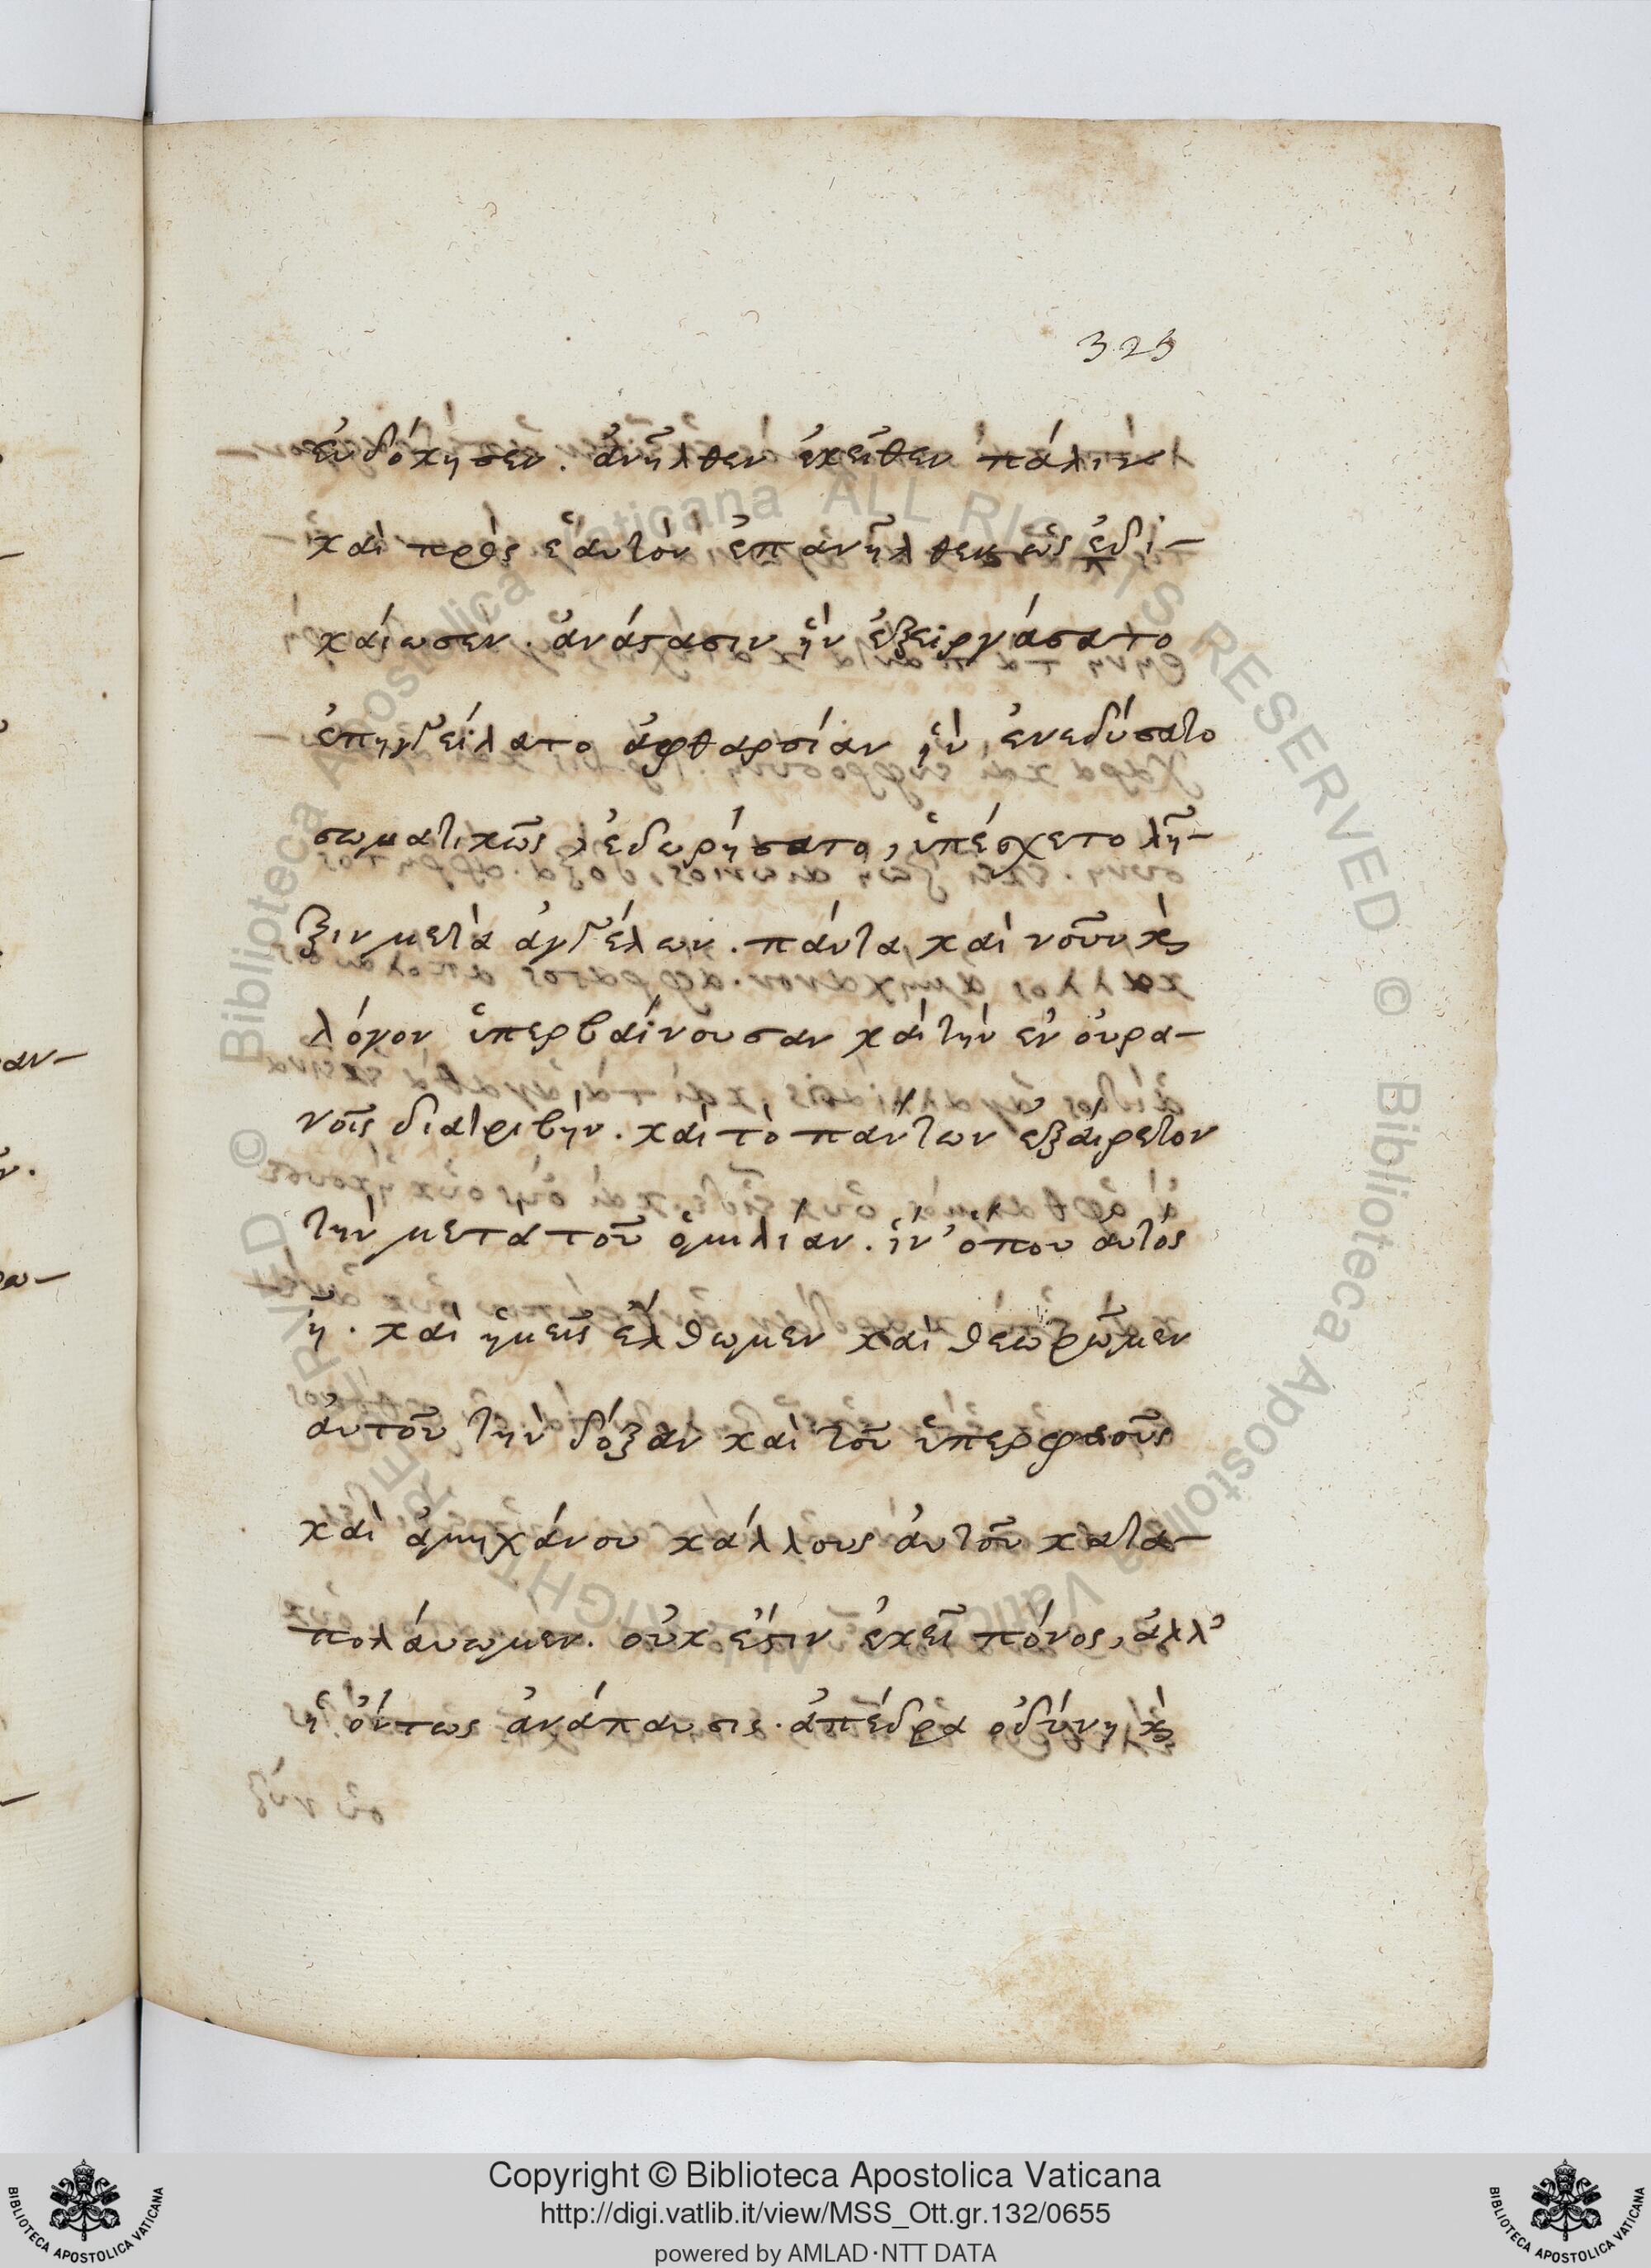 325
εὐδόκησεν. ἀνῆλθεν ἐκεῖθεν πάλιν
καὶ πρὸς ἑαυτὸν ἐπανῆλθεν ὡς ἐδι-
καίωσεν. ἀνάστασιν ἣν ἐξειργάσατο
ἐπηγγείλατο ἀφθαρσίαν ἣν ἐνεδύσατο
σωματικῶς, ἐδωρήσατο, ὑπέσχετο λῆ-
ξιν μετὰ ἀγγέλων. πάντα καὶ νοῦν κ̀
λόγον ὑπερβαίνουσαν καὶ τὴν ἐν οὐρα-
νοῖς διατριβὴν. καὶ τὸ πάντων ἐξαίρετον
τὴν μετα τοῦ ὁμιλίαν. ἵν' ὅπου αὐτὸς
ᾖ. καὶ ἡμεῖς ἔλθωμεν καὶ θεωρῶμεν
αὐτοῦ τὴν δόξαν καὶ τοῦ ὑπερφαοῦς
καὶ ἀμηχάνου κάλλους αὐτοῦ κατα-
πολάυωμεν. οὐκ ἔστιν ἐκεῖ πόνος, ἀλλ'
ἡ ὄντως ἀνάπαυσις. ἀπέδρα ὀδύνη κ̀
Biblioteca Apostolica Vaticana ALL RIGHTS RESERVED ©
Copyright © Biblioteca Apostolica Vaticana
http://digi.vatlib.it/view/MSS_Ott.gr.132/0655
powered by AMLAD·NTT DATA
BIBLIOTECA APOSTOLICA VATICANA
BIBLIOTECA APOSTOLICA VATICANA